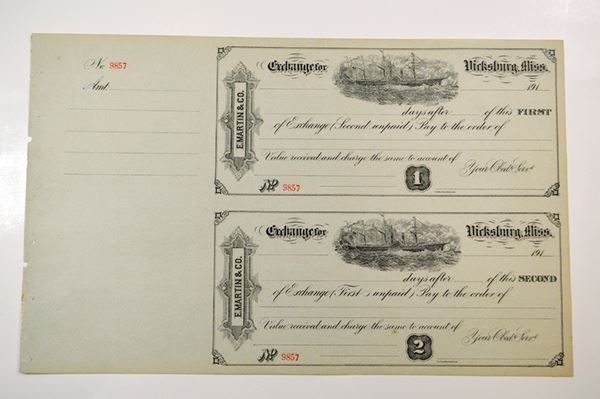 No 9857
Amt
E. MARTIN & CO.
Exchange for Vicksburg, Miss.
191
days after of this FIRST
of Exchange (Second unpaid) Pay to the order of
Value received and charge the same to account of
No 9857 1 Your Obdt. Servt.
E. MARTIN & CO.
Exchange for Vicksburg, Miss.
191
days after of this SECOND
of Exchange (First unpaid) Pay to the order of
Value received and charge the same to account of
No 9857 2 Your Obdt. Servt.